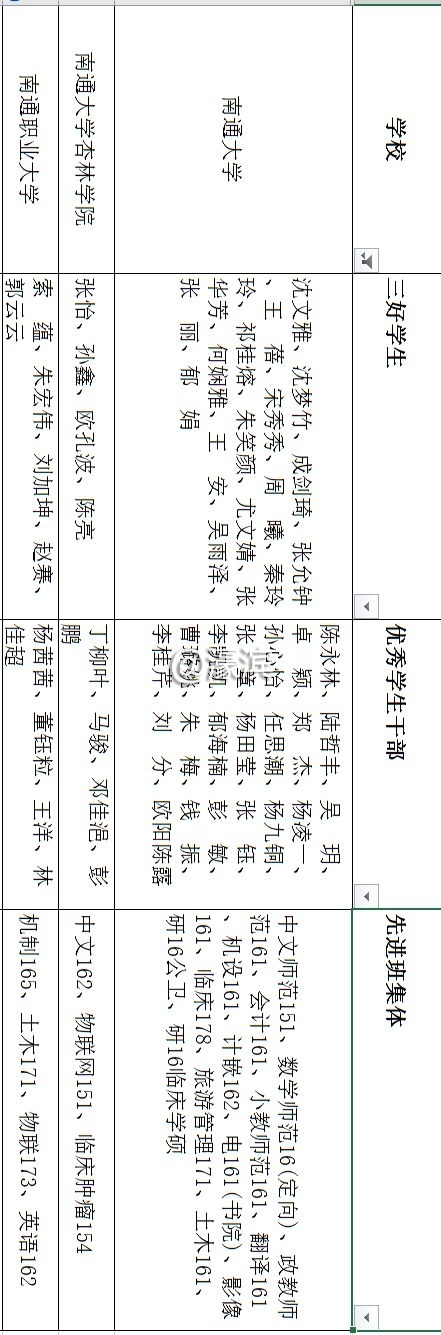 学校
三好学生
优秀学生干部
先进班集体
南通大学
沈文雅、沈梦竹、成剑琦、张允钟
、王 蓓、宋秀秀、周 曦、秦玲
玲、祁桂熔、朱笑颜、尤文婧、张
华芳、何娴雅、王 安、吴雨泽、
张 丽、郁 娟
陈永林、陆哲丰、吴 玥、
卓 颖、郑 杰、杨凌一、
孙心怡、任思潮、杨九铜、
张 、杨田莹、张 钰、
李凯、郁海楠、彭 敏、
曹、朱 梅、钱 振、
李桂芹、刘 分、欧阳陈露
中文师范151、数学师范16(定向)、政教师
范161、会计161、小教师范161、翻译161
、机设161、计嵌162、电161(书院)、影像
161、临床178、旅游管理171、土木161、
研16公卫、研16临床学硕
南通大学杏林学院
张怡、孙鑫、欧孔波、陈亮
丁柳叶、马骏、邓佳浥、彭
鹏
中文162、物联网151、临床肿瘤154
南通职业大学
索 蕴、朱宏伟、刘加坤、赵赛、
郭云云
杨茜茜、董钰粒、王洋、林
佳超
机制165、土木171、物联173、英语162
@濠滨